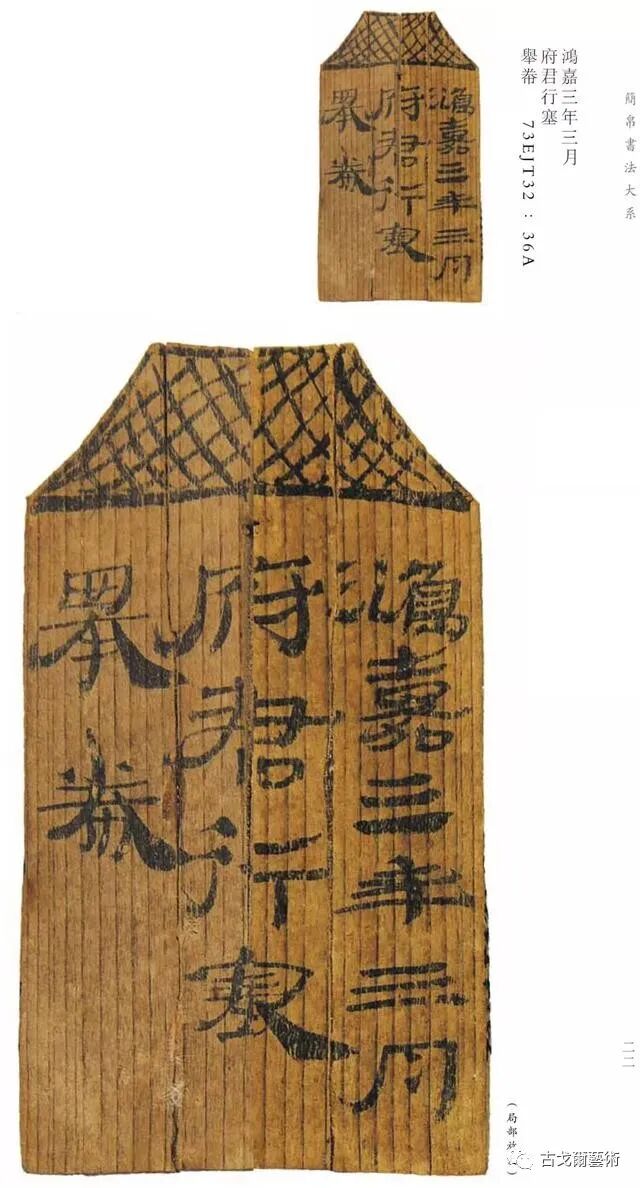 簡帛書法大系
鴻嘉三年三月
府君行塞
舉桊 73EJT32：36A
鴻嘉三年三月
府君行塞
舉桊
鴻嘉三年三月
府君行塞
舉桊
二二
（局部放
古戈爾藝術